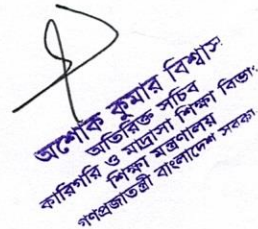 অশোক কুমার বিশ্বাস
অতিরিক্ত সচিব
কারিগরি ও মাদ্রাসা শিক্ষা বিভা
শিক্ষা মন্ত্রণালয়
গণপ্রজাতন্ত্রী বাংলাদেশ সরকা